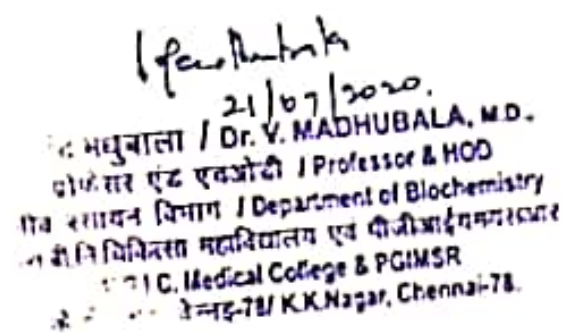 21/07/2020.
मधुबाला / Dr. V. MADHUBALA, M.D.
प्रोफेसर एंड एचओडी / Professor & HOD
रसायन विभाग / Department of Biochemistry
महाविद्यालय एवं पीजीआईएमएसआर
I C. Medical College & PGIMSR
चेन्नई-78/ K.K.Nagar, Chennai-78.